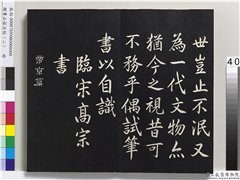 世豈止不泯又
為一代文物亦
猶今之視昔可
不務乎偶試筆
書以自識
臨宋高宗
書